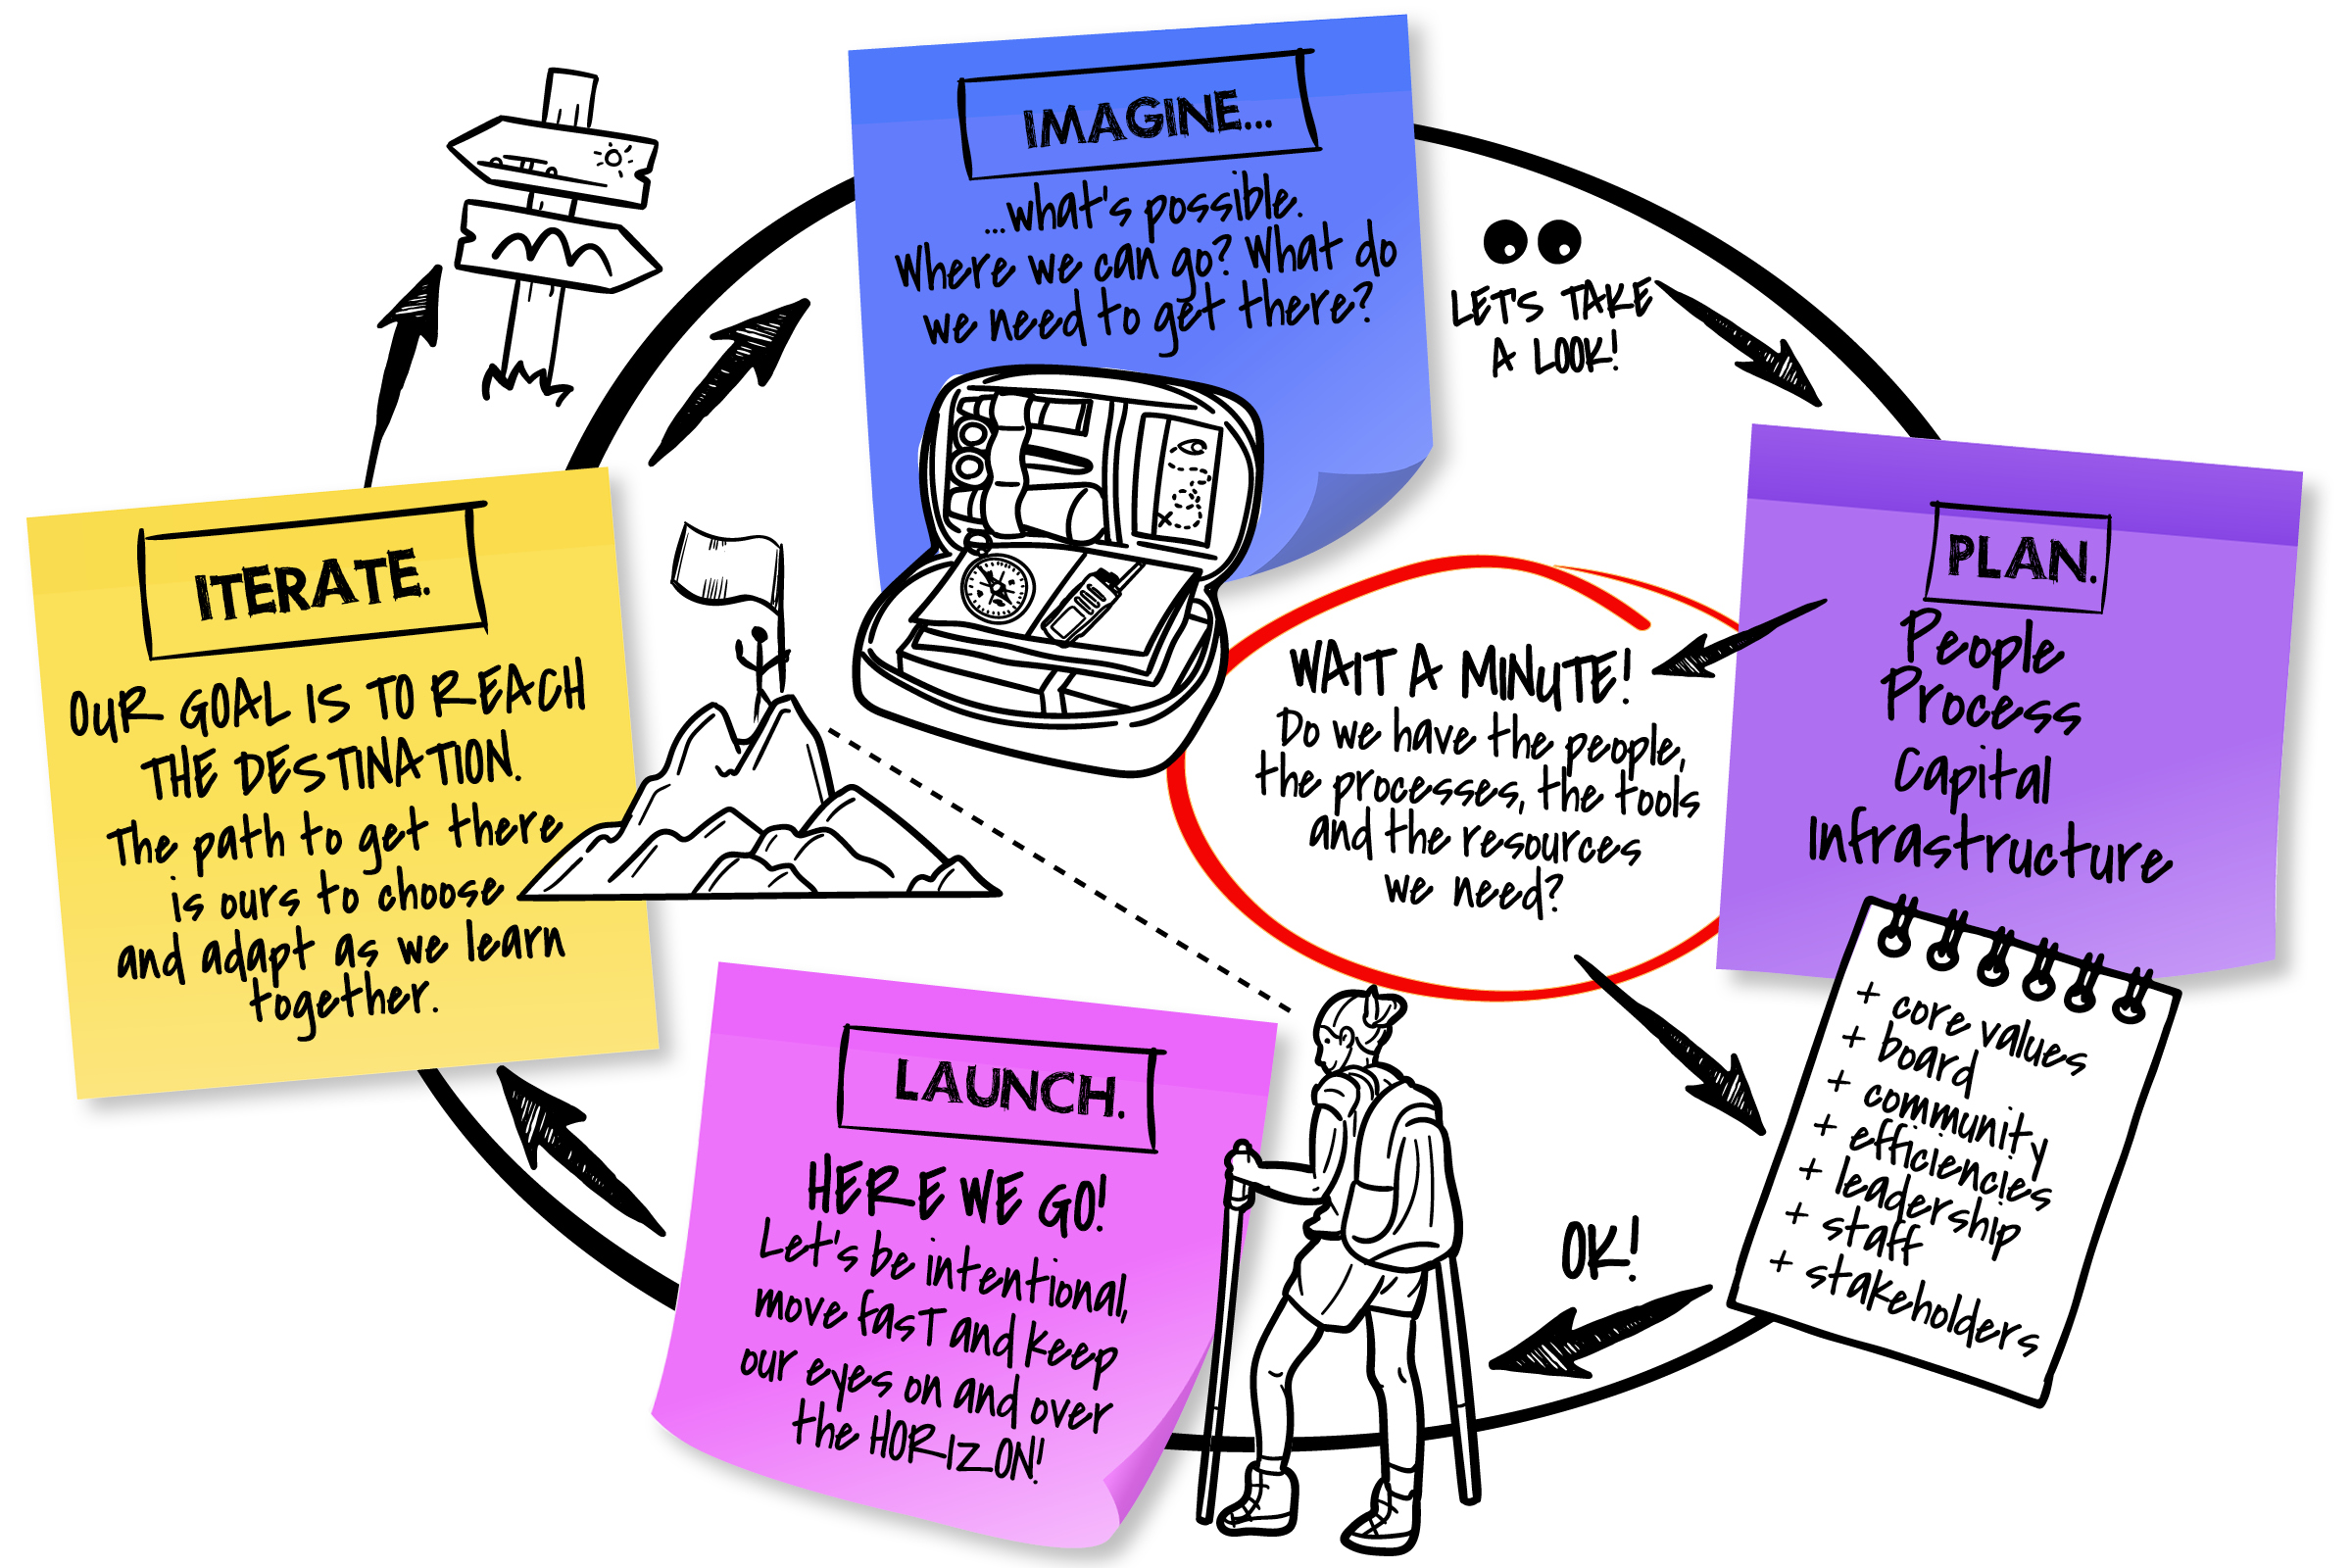 IMAGINE...
...what's possible.
Where we can go? What do
we need to get there?
LET'S TAKE
A LOOK!
PLAN.
People
Process
Capital
Infrastructure
WAIT A MINUTE!
Do we have the people,
the processes, the tools
and the resources
we need?
+ core values
+ board
+ community
+ efficiencies
+ leadership
+ staff
+ stakeholders
OK!
LAUNCH.
HERE WE GO!
Let's be intentional,
move fast and keep
our eyes on and over
the HORIZON!
ITERATE.
OUR GOAL IS TO REACH
THE DESTINATION.
The path to get there
is ours to choose
and adapt as we learn
together.